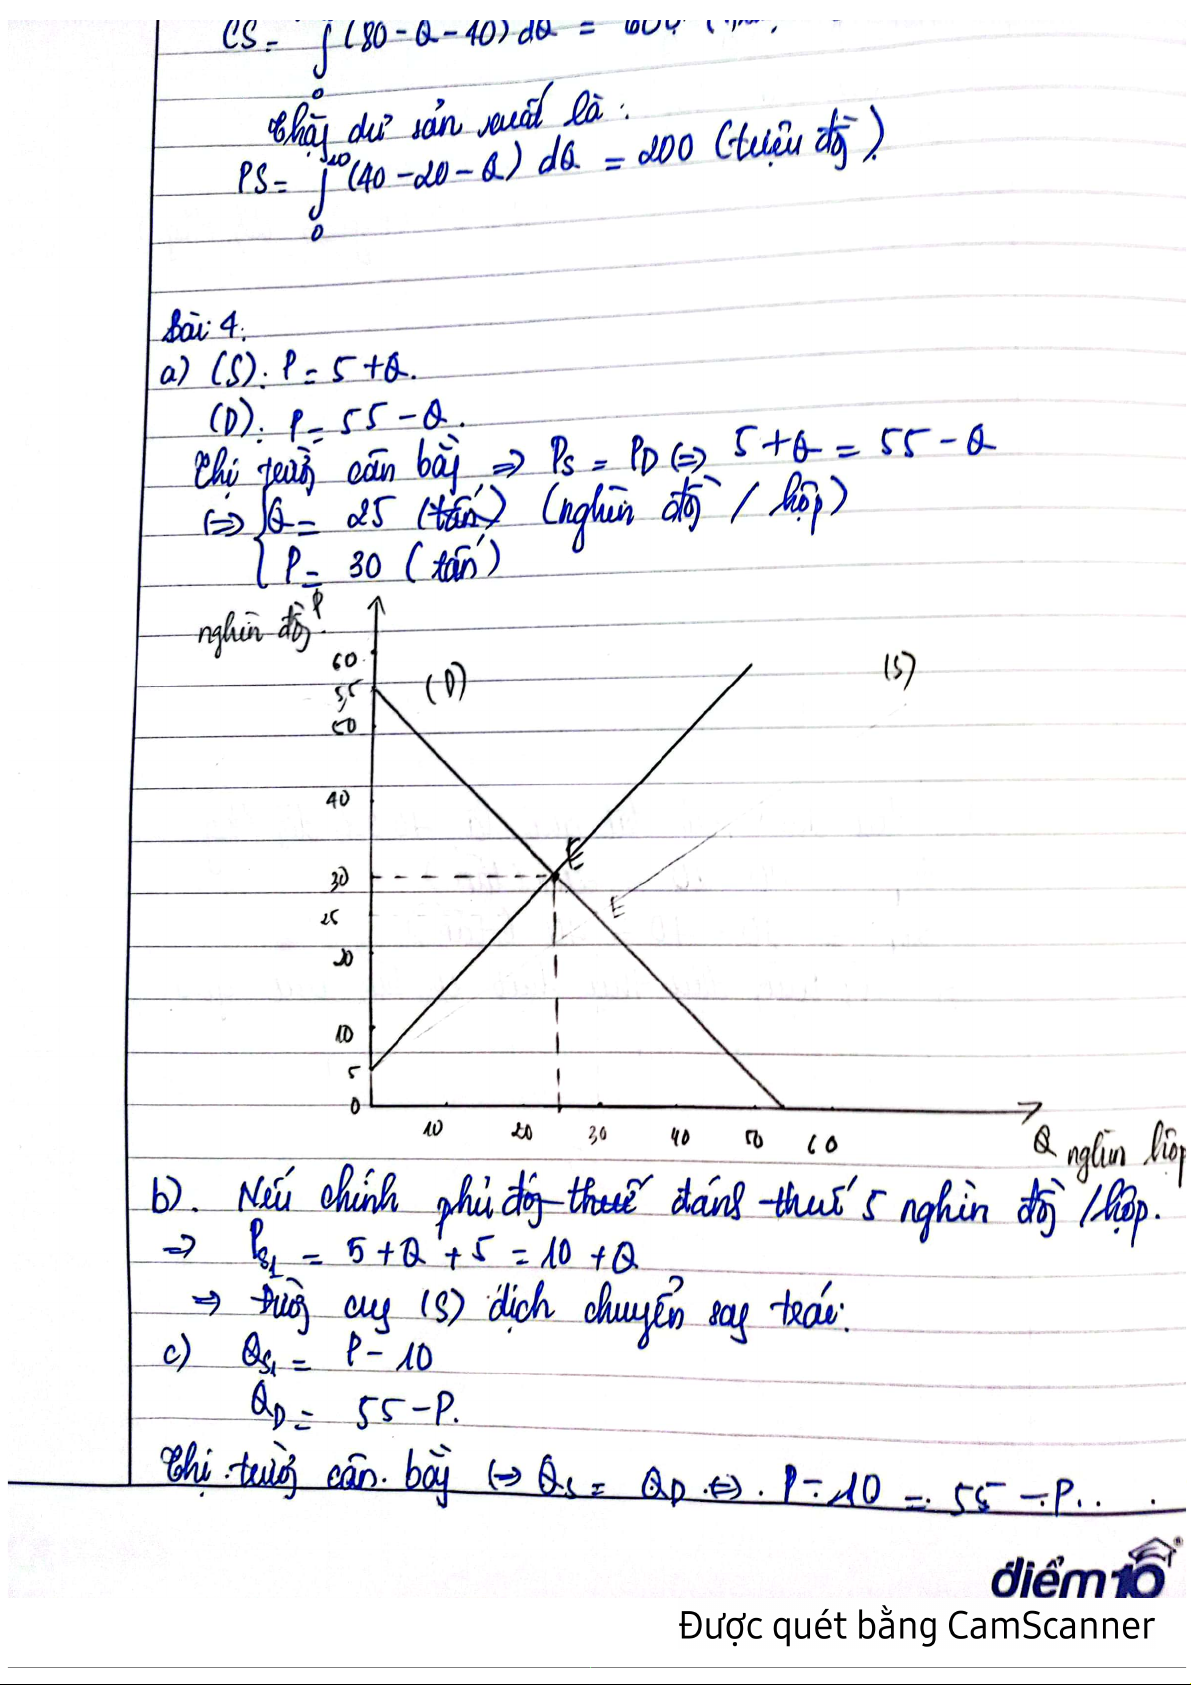 CS = ∫ (80 - Q - 40) dQ =
0
Thặng dư sản xuất là:
PS = ∫ (40 - 20 - Q) dQ = 200 (triệu đồng)
0
Bài 4.
a) (S): P = 5 + Q.
(D): P = 55 - Q.
Thị trường cân bằng => PS = PD <=> 5 + Q = 55 - Q
<=> { Q = 25 (tấn) (nghìn đồng / hộp)
P = 30 (tấn)
P
nghìn đồng
60
(D)
(S)
55
50
40
E
30
25
E
20
10
5
0
10 20 30 40 50 60
Q nghìn hộp
b). Nếu chính phủ đóng thuế đánh thuế 5 nghìn đồng / hộp.
=> PS1 = 5 + Q + 5 = 10 + Q
=> Đường cung (S) dịch chuyển sang trái.
c) QS1 = P - 10
QD = 55 - P.
Thị trường cân bằng <=> QS = QD <=> P - 10 = 55 - P
điểm10
Được quét bằng CamScanner